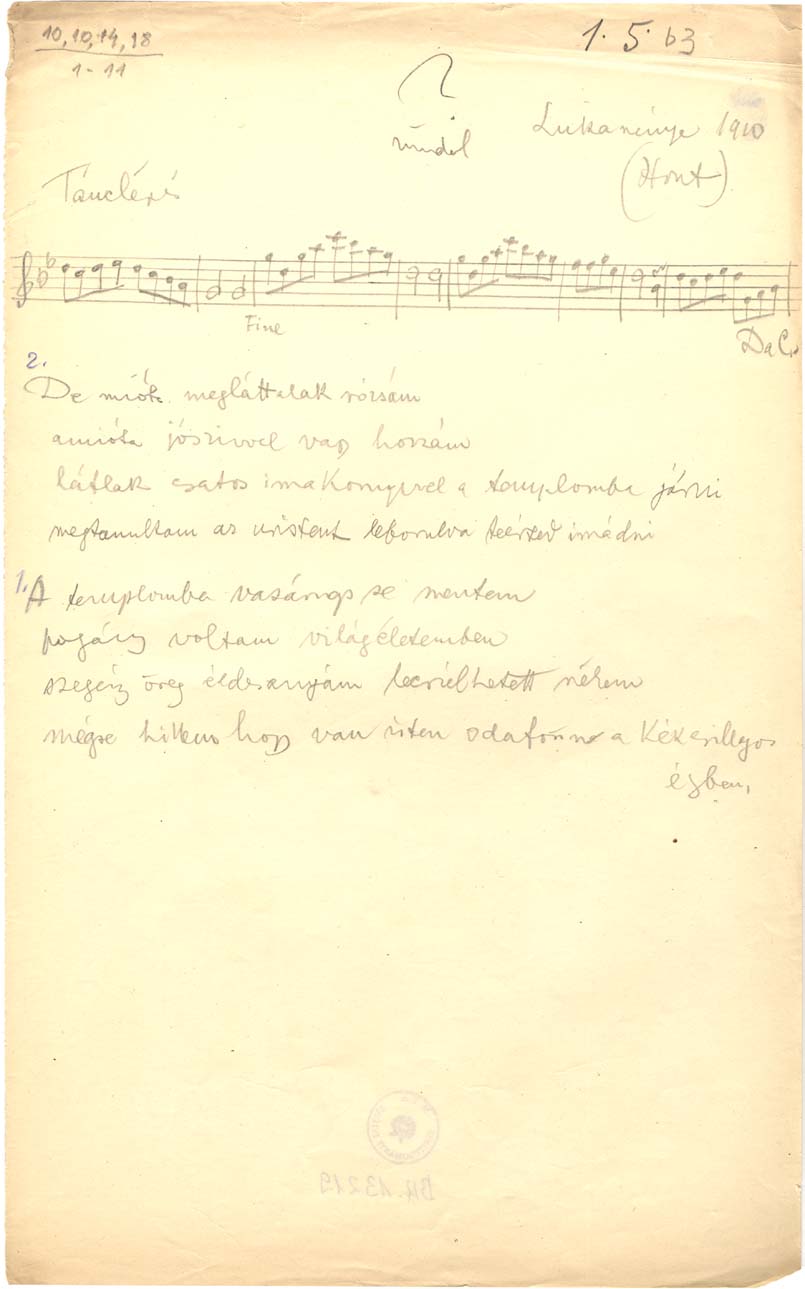 10, 10, 14, 18
1-11
1. 5. 63
Lukanénye 1910
(Hont)
Tánclépés
Fine
Da C.
2.
De mióta megláttalak rózsám
amióta jószivvel vagy hozzám
látlak csatos imakönyvvel a templomba járni
megtanultam az uristent leborulva teérted imádni
1. A templomba vasárnap se mentem
pogány voltam világéletemben
szegény öreg édesanyám beszélhetett nékem
mégse hittem hogy van isten odafönn a kékcsillagos
égben,
BR. 13219